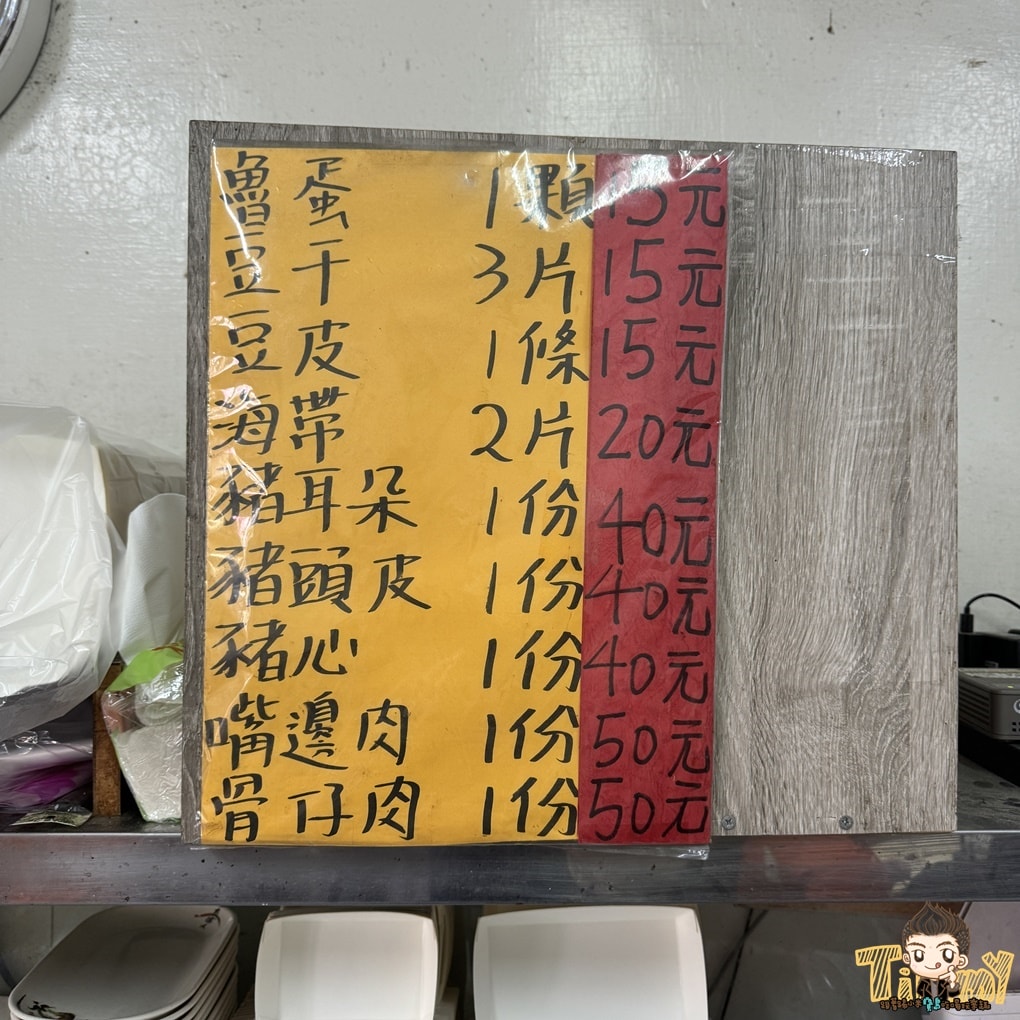 魯蛋 1顆 15元
豆干 3片 15元
豆皮 1條 15元
海帶 2片 20元
豬耳朵 1份 40元
豬頭皮 1份 40元
豬心 1份 40元
嘴邊肉 1份 50元
骨仔肉 1份 50元